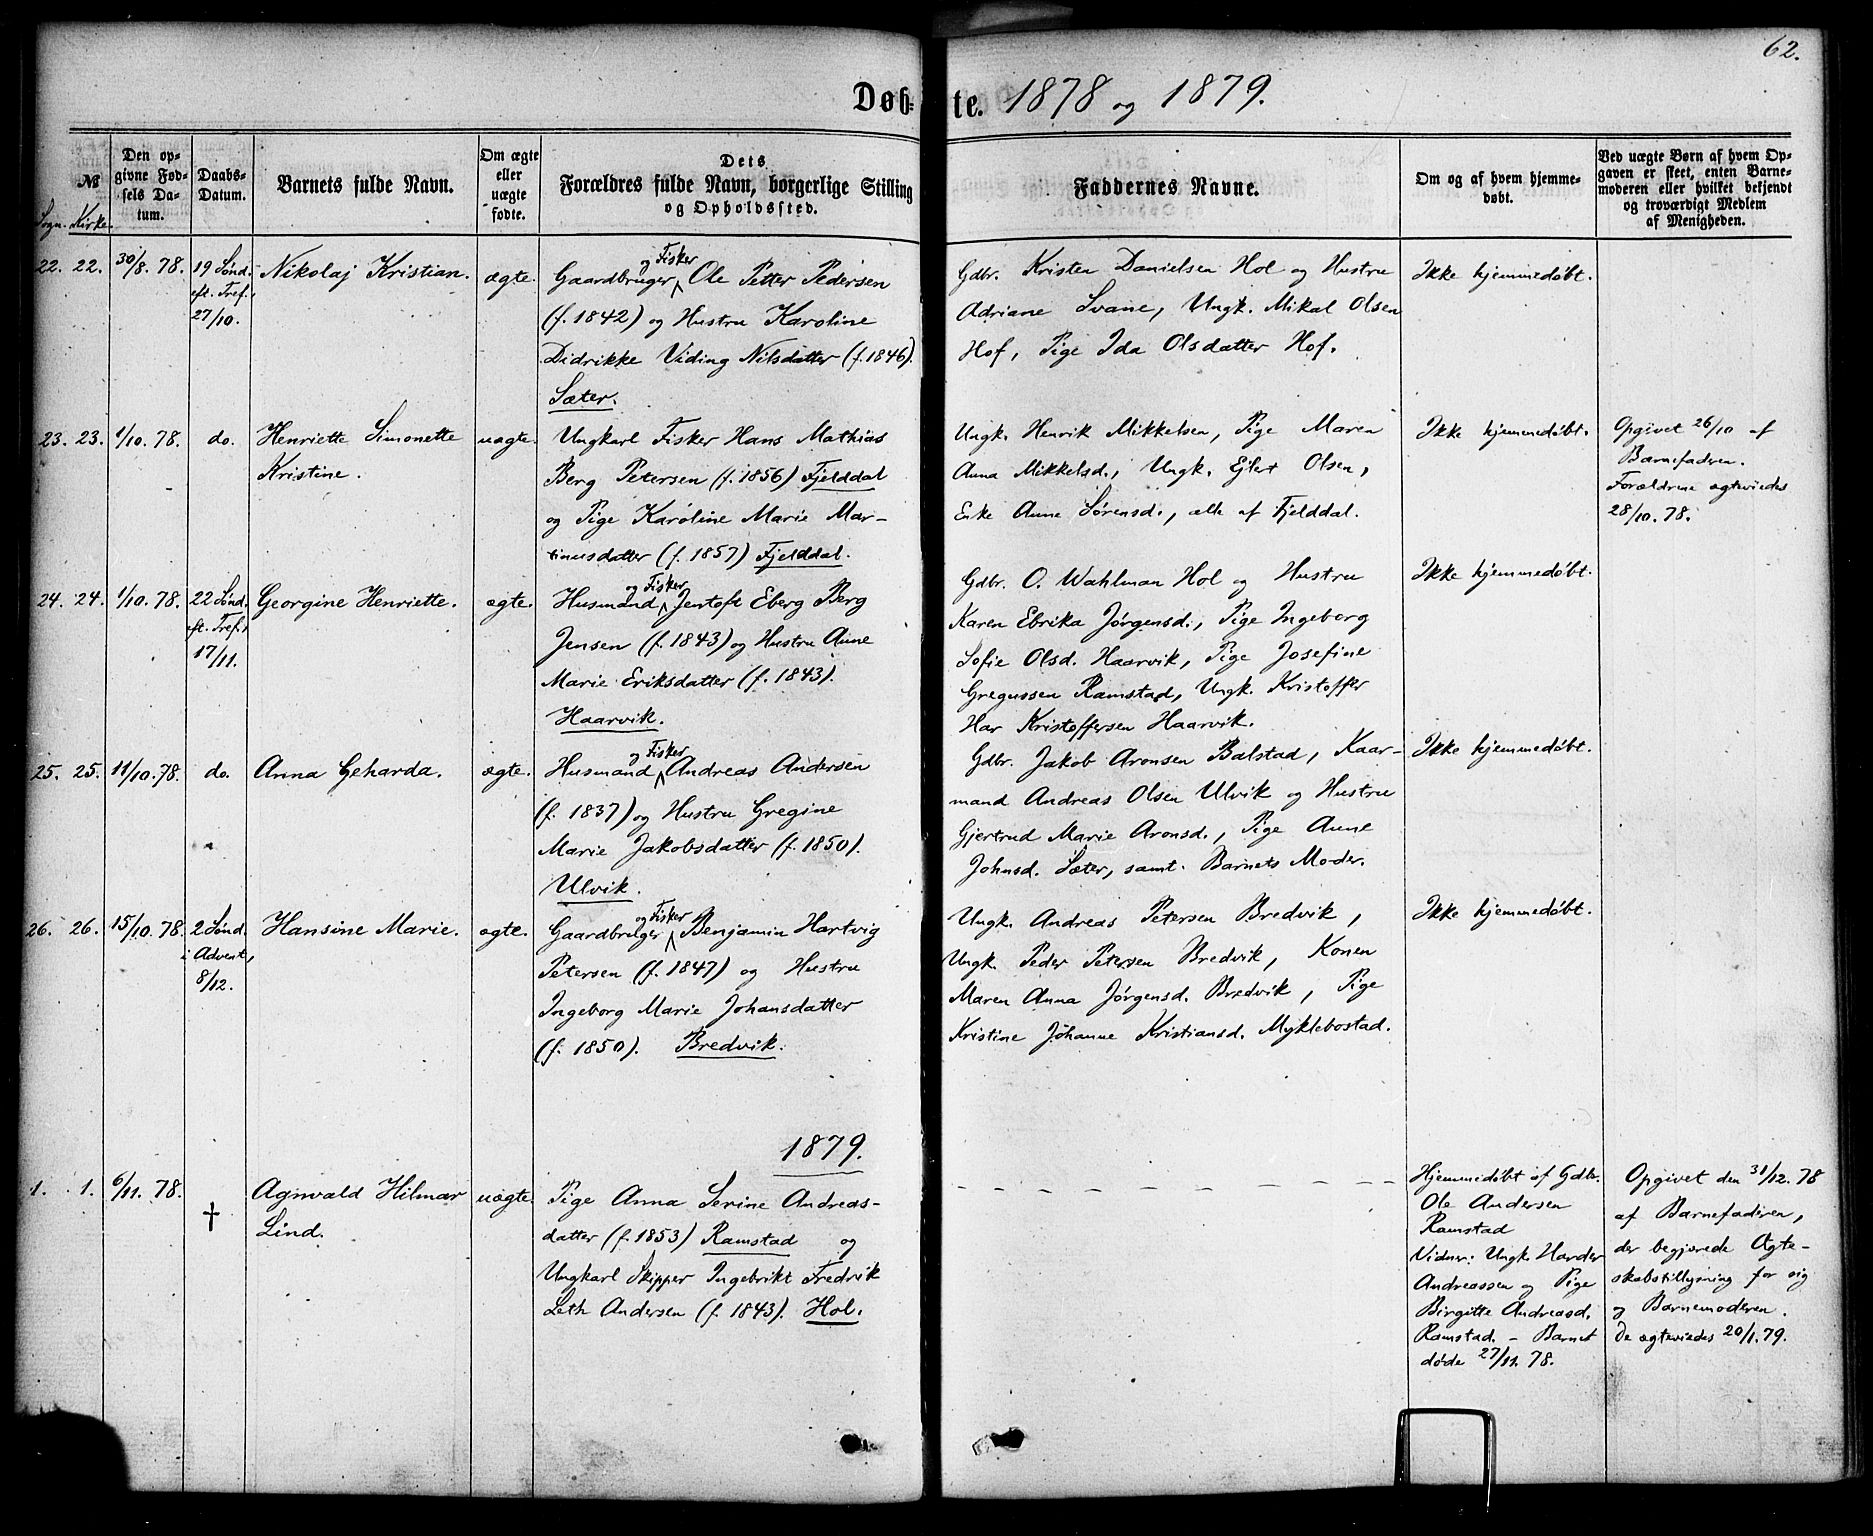 62.
Døb-te. 1878 og 1879.
№
Sogn. Kirke.
Den op-
givne Fød-
sels Da-
tum.
Daabs-
Datum.
Barnets fulde Navn.
Om ægte
eller
uægte
fødte.
Dets
Forældres fulde Navn, borgerlige Stilling
og Opholdssted.
Faddernes Navne.
Om og af hvem hjemme-
døbt.
Ved uægte Børn af hvem Op-
gaven er skeet, enten Barne-
moderen eller hvilket bekjendt
og troværdigt Medlem
af Menigheden.
22. 22. 30/8. 78.
19 Sønd.
eft. Tref.
27/10.
Nikolaj Kristian.
ægte.
og Fisker
Gaardbruger ^ Ole Petter Pedersen
(f. 1842) og Hustru Karoline
Didrikke Viding Nilsdatter (f. 1846).
Sæter.
Gdbr. Kristen Danielsen Hol og Hustru
Adriane Svane, Ungk. Mikal Olsen
Hof, Pige Ida Olsdatter Hof.
Ikke hjemmedøbt.
23. 23. 1/10. 78.
do.
Henriette Simonette
Kristine.
uægte.
Ungkarl Fisker Hans Mathias
Berg Petersen (f. 1856) Fjelddal
og Pige Karoline Marie Mar-
tinusdatter (f. 1857) Fjelddal.
Ungk. Henrik Mikkelsen, Pige Maren
Anna Mikkelsd., Ungk. Ejlert Olsen,
Enke Anne Sørensd., alle af Fjelddal.
Ikke hjemmedøbt.
Opgivet 26/10 af
Barnefaderen.
Forældrene ægteviedes
28/10. 78.
24. 24. 1/10. 78.
22 Sønd.
eft. Tref.
17/11.
Georgine Henriette.
ægte.
og Fisker
Husmand ^ Jentoft Eberg Berg
Jensen (f. 1843) og Hustru Anne
Marie Eriksdatter (f. 1843).
Haarvik.
Gdbr. O. Wahlman Hol og Hustru
Karen Ebrika Jørgensd., Pige Ingeborg
Sofie Olsd. Haarvik, Pige Josefine
Gregussen Ramstad, Ungk. Kristoffer
Har Kristoffersen Haarvik.
Ikke hjemmedøbt.
25. 25. 11/10. 78.
do.
Anna Geharda.
ægte.
og Fisker
Husmand ^ Andreas Andersen
(f. 1837) og Hustru Gregine
Marie Jakobsdatter (f. 1850).
Ulvik.
Gdbr. Jakob Aronsen Balstad, Kaar-
mand Andreas Olsen Ulvik og Hustru
Gjertrud Marie Aronsd., Pige Anne
Johnsd. Sæter, samt Barnets Moder.
Ikke hjemmedøbt.
26. 26. 15/10. 78.
2 Sønd.
i Advent,
8/12.
Hansine Marie.
ægte.
og Fisker
Gaardbruger ^ Benjamin Hartvig
Petersen (f. 1847) og Hustru
Ingeborg Marie Johansdatter
(f. 1850). Bredvik.
Ungk. Andreas Petersen Bredvik,
Ungk. Peder Petersen Bredvik, Konen
Maren Anna Jørgensd. Bredvik, Pige
Kristine Johanne Kristiansd. Myklebostad.
Ikke hjemmedøbt.
1879.
1. 1. 6/11. 78.
†
Aginvald Hilmar
Lind.
uægte.
Pige Anna Serine Andreas-
datter (f. 1853) Ramstad og
Ungkarl Skipper Ingebrikt Fredrik
Leth Andersen (f. 1843). Hol.
Hjemmedøbt af Gdbr.
Ole Andersen
Ramstad
Vidner: Ungk. Harder
Andreassen og Pige
Birgitte Andreasd.
Ramstad. - Barnet
døde 27/11. 78.
Opgivet den 31/12. 78
af Barnefaderen,
der begjærede Ægte-
skabstillysning for sig
og Barnemoderen.
De ægteviedes 20/1. 79.